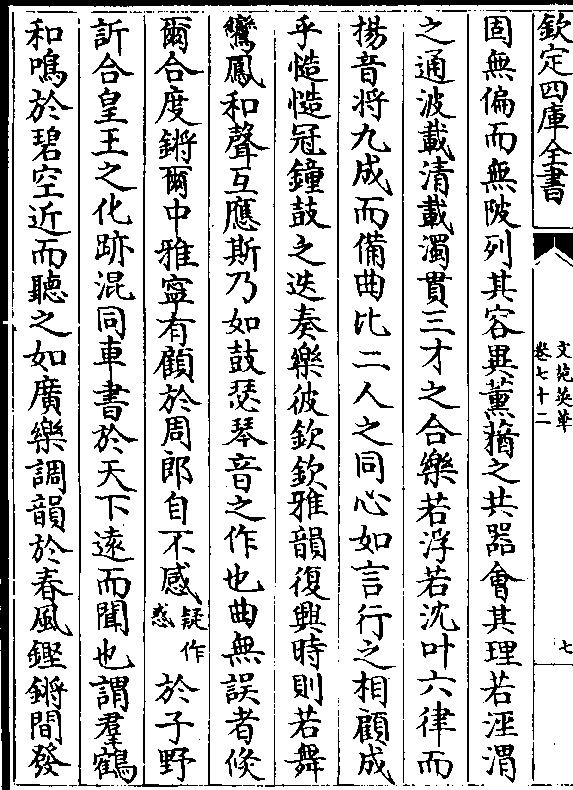 欽定四庫全書
文苑英華
卷七十二
七
固無偏而無陂列其容異薰蕕之共器會其理若涇渭
之通波載清載濁貫三才之合樂若浮若沈叶六律而
揚音将九成而備曲比二人之同心如言行之相顧成
乎慥慥冠鐘鼓之迭奏樂彼欽欽雅韻復興時則若舞
鸞鳳和聲互應斯乃如鼓瑟琴音之作也曲無誤者倐
爾合度鏘爾中雅寧有顧於周郎自不感疑作惑於子野
訢合皇王之化跡混同車書於天下遠而聞也謂羣鶴
和鳴於碧空近而聽之如廣樂調韻於春風鏗鏘間發